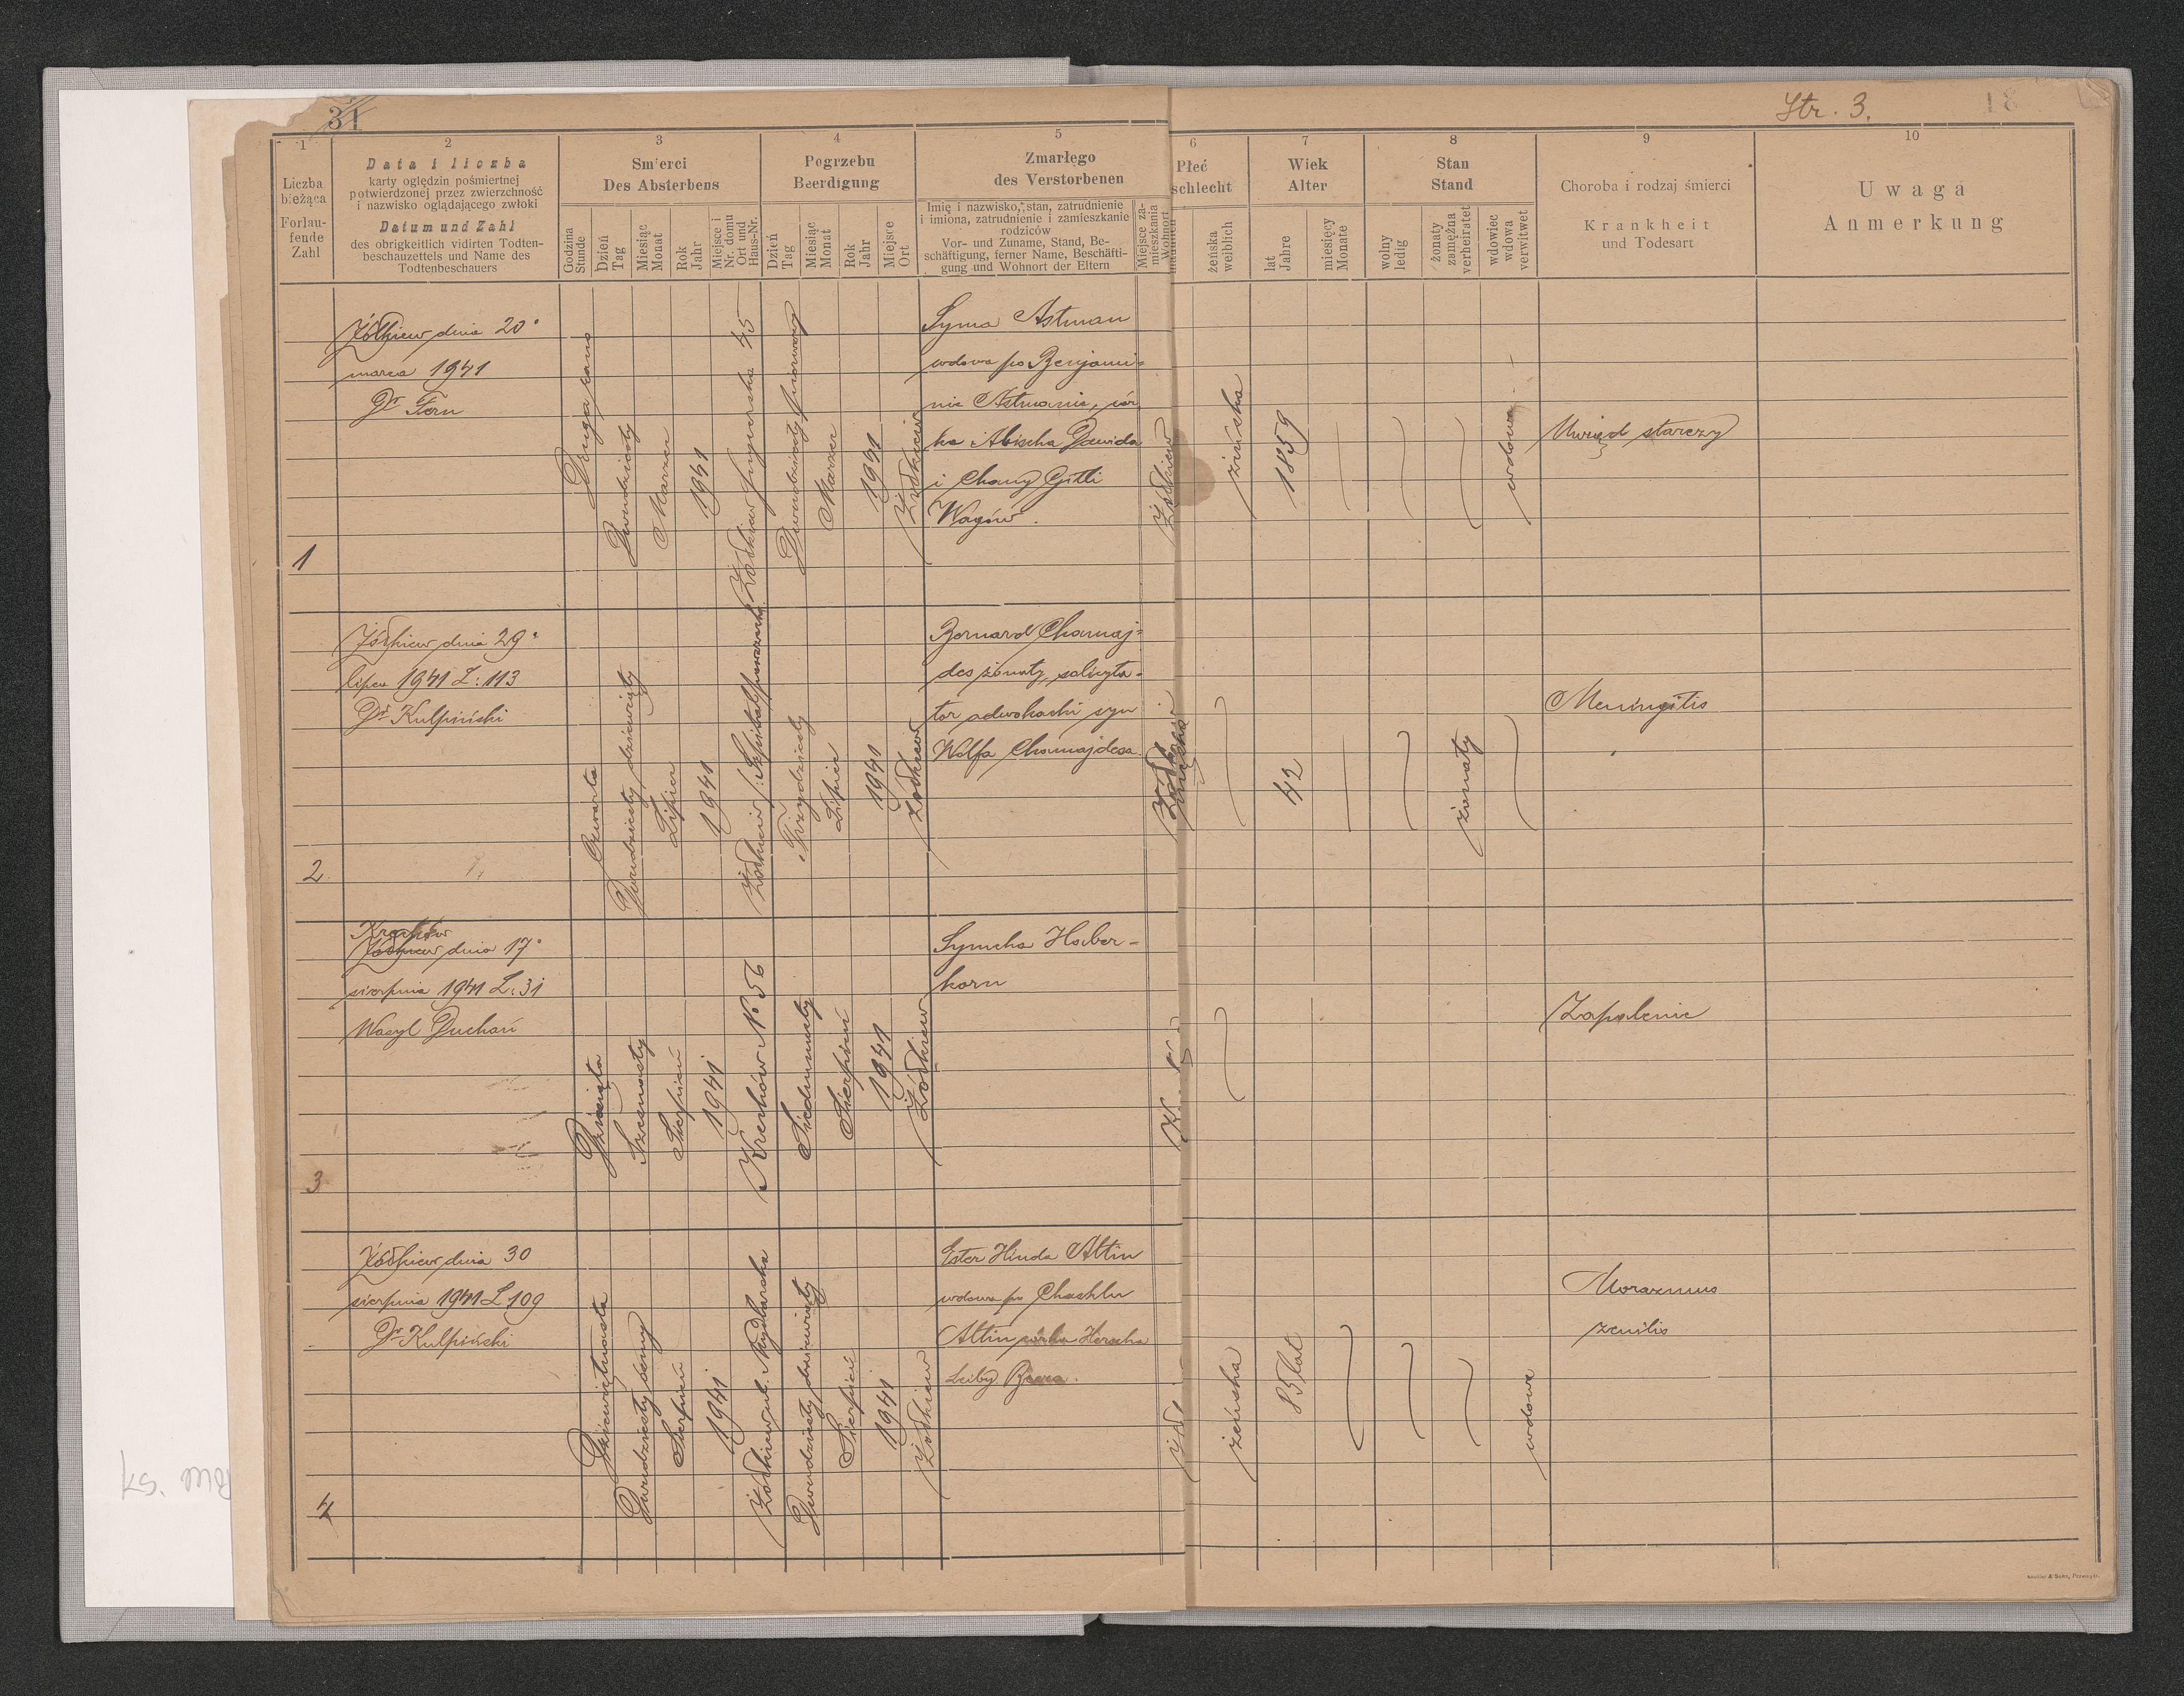 31
Str. 3.
18
1
2
3
4
5
6
7
8
9
10
Liczba
bieżąca
Forlau-
fende
Zahl
Data i liczba
karty oględzin pośmiertnej
potwierdzonej przez zwierzchność
i nazwisko oglądającego zwłoki
Datum und Zahl
des obrigkeitlich vidirten Todten-
beschauzettels und Name des
Todtenbeschauers
Smierci
Des Absterbens
Godzina
Stunde
Dzień
Tag
Miesiąc
Monat
Rok
Jahr
Miejsce i
Nr. domu
Ort und
Haus-Nr.
Pogrzebu
Beerdigung
Dzień
Tag
Miesiąc
Monat
Rok
Jahr
Miejsce
Ort
Zmarłego
des Verstorbenen
Imię i nazwisko, stan, zatrudnienie
i imiona, zatrudnienie i zamieszkanie
rodziców
Vor- und Zuname, Stand, Be-
schäftigung, ferner Name, Beschäfti-
gung und Wohnort der Eltern
Miejsce za-
mieszkania
Wohnort
Płeć
schlecht
żeńska
weiblich
Wiek
Alter
lat
Jahre
miesięcy
Monate
Stan
Stand
wolny
ledig
żonaty
zamężna
verheiratet
wdowiec
wdowa
verwitwet
Choroba i rodzaj śmierci
Krankheit
und Todesart
Uwaga
Anmerkung
1
Żółkiew dnia 20.
marca 1941
Dr Fern
Druga rano
Dwudziesty
Marzec
1941
Żółkiew 45
Dwudziesty pierwszy
Marzec
1941
Żółkiew
Syma Astman
wdowa po Benjami-
nie Astmanie, cór
ka Abischa Dawida
i Chany Gitli
Wagów.
Żółkiew
żeńska
1859
wdowa
Uwiąd starczy
2
Żółkiew dnia 29.
lipca 1941 L: 113
Dr Kulpiński
Czwarta
Dwudziesty dziewiąty
Lipiec
1941
Żółkiew
Trzydziesty
Lipiec
1941
Żółkiew
Bernard Chamaj-
des żonaty, solicyta-
tor adwokacki syn
Wolfa Chamajdesa.
42
żonaty
Meningitis
3
Krechów
Żółkiew dnia 17.
sierpnia 1941 L: 31
Wasyl Duchań
Dziesiąta
Szesnasty
Sierpień
1941
Krechów No 56
Siedmnasty
Sierpień
1941
Żółkiew
Symcha Haber-
korn
Zapalenie
4
Żółkiew dnia 30
sierpnia 1941 L 109
Dr Kulpiński
Dziewiętnasta
Dwudziesty ósmy
Sierpień
1941
Żółkiew ul.
Dwudziesty dziewiąty
Sierpień
1941
Żółkiew
Ester Hinda Altin
wdowa po Chasklu
Altin córka Herscha
Leiby
żeńska
85 lat
wdowa
Morazmus
zenilis